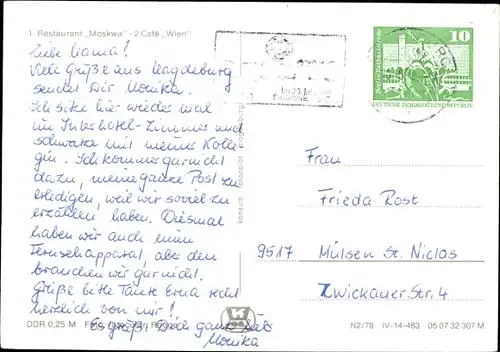 1 Restaurant „Moskwa" - 2 Café „Wien"
Liebe Mama!
Viele Grüße aus Magdeburg
sendet Dir Monika.
Ich sitze hier wieder mal
im Interhotel-Zimmer und
schwatze mit meiner Kolle
gin. Ich komme gar nicht
dazu, meine ganze Post zu
erledigen, weil wir soviel zu
erzählen haben. Diesmal
haben wir auch einen
Fernsehapparat, aber den
brauchen wir gar nicht.
Grüße bitte Tante Erna recht
herzlich von mir!
Es grüßt Dich ganz
Monika
DDR 0,25 M
konsum fotocolor magdeburg
10
DEUTSCHE DEMOKRATISCHE REPUBLIK
Frau
Frieda Rost
9517 Mülsen St. Niclas
Zwickauer Str. 4
N2/78 IV-14-483 05 07 32 307 M